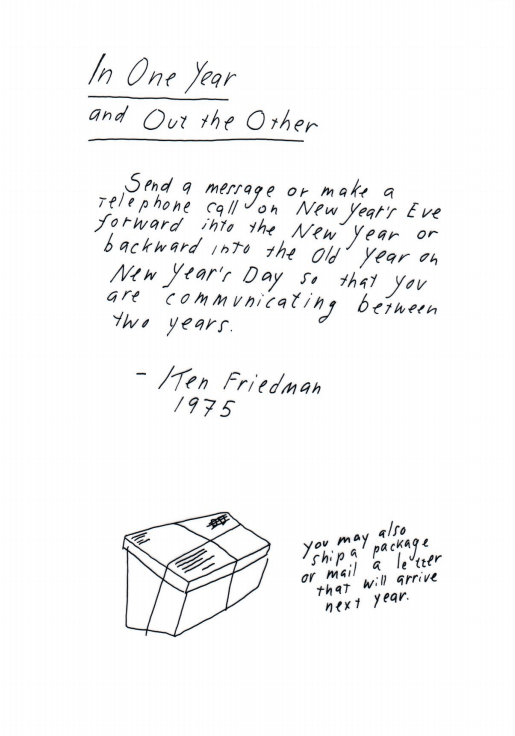 In One Year
and Out the Other
Send a message or make a
telephone call on New Year's Eve
forward into the New Year or
backward into the Old Year on
New Year's Day so that you
are communicating between
two years.
- Ken Friedman
1975
you may also
ship a package
or mail a letter
that will arrive
next year.